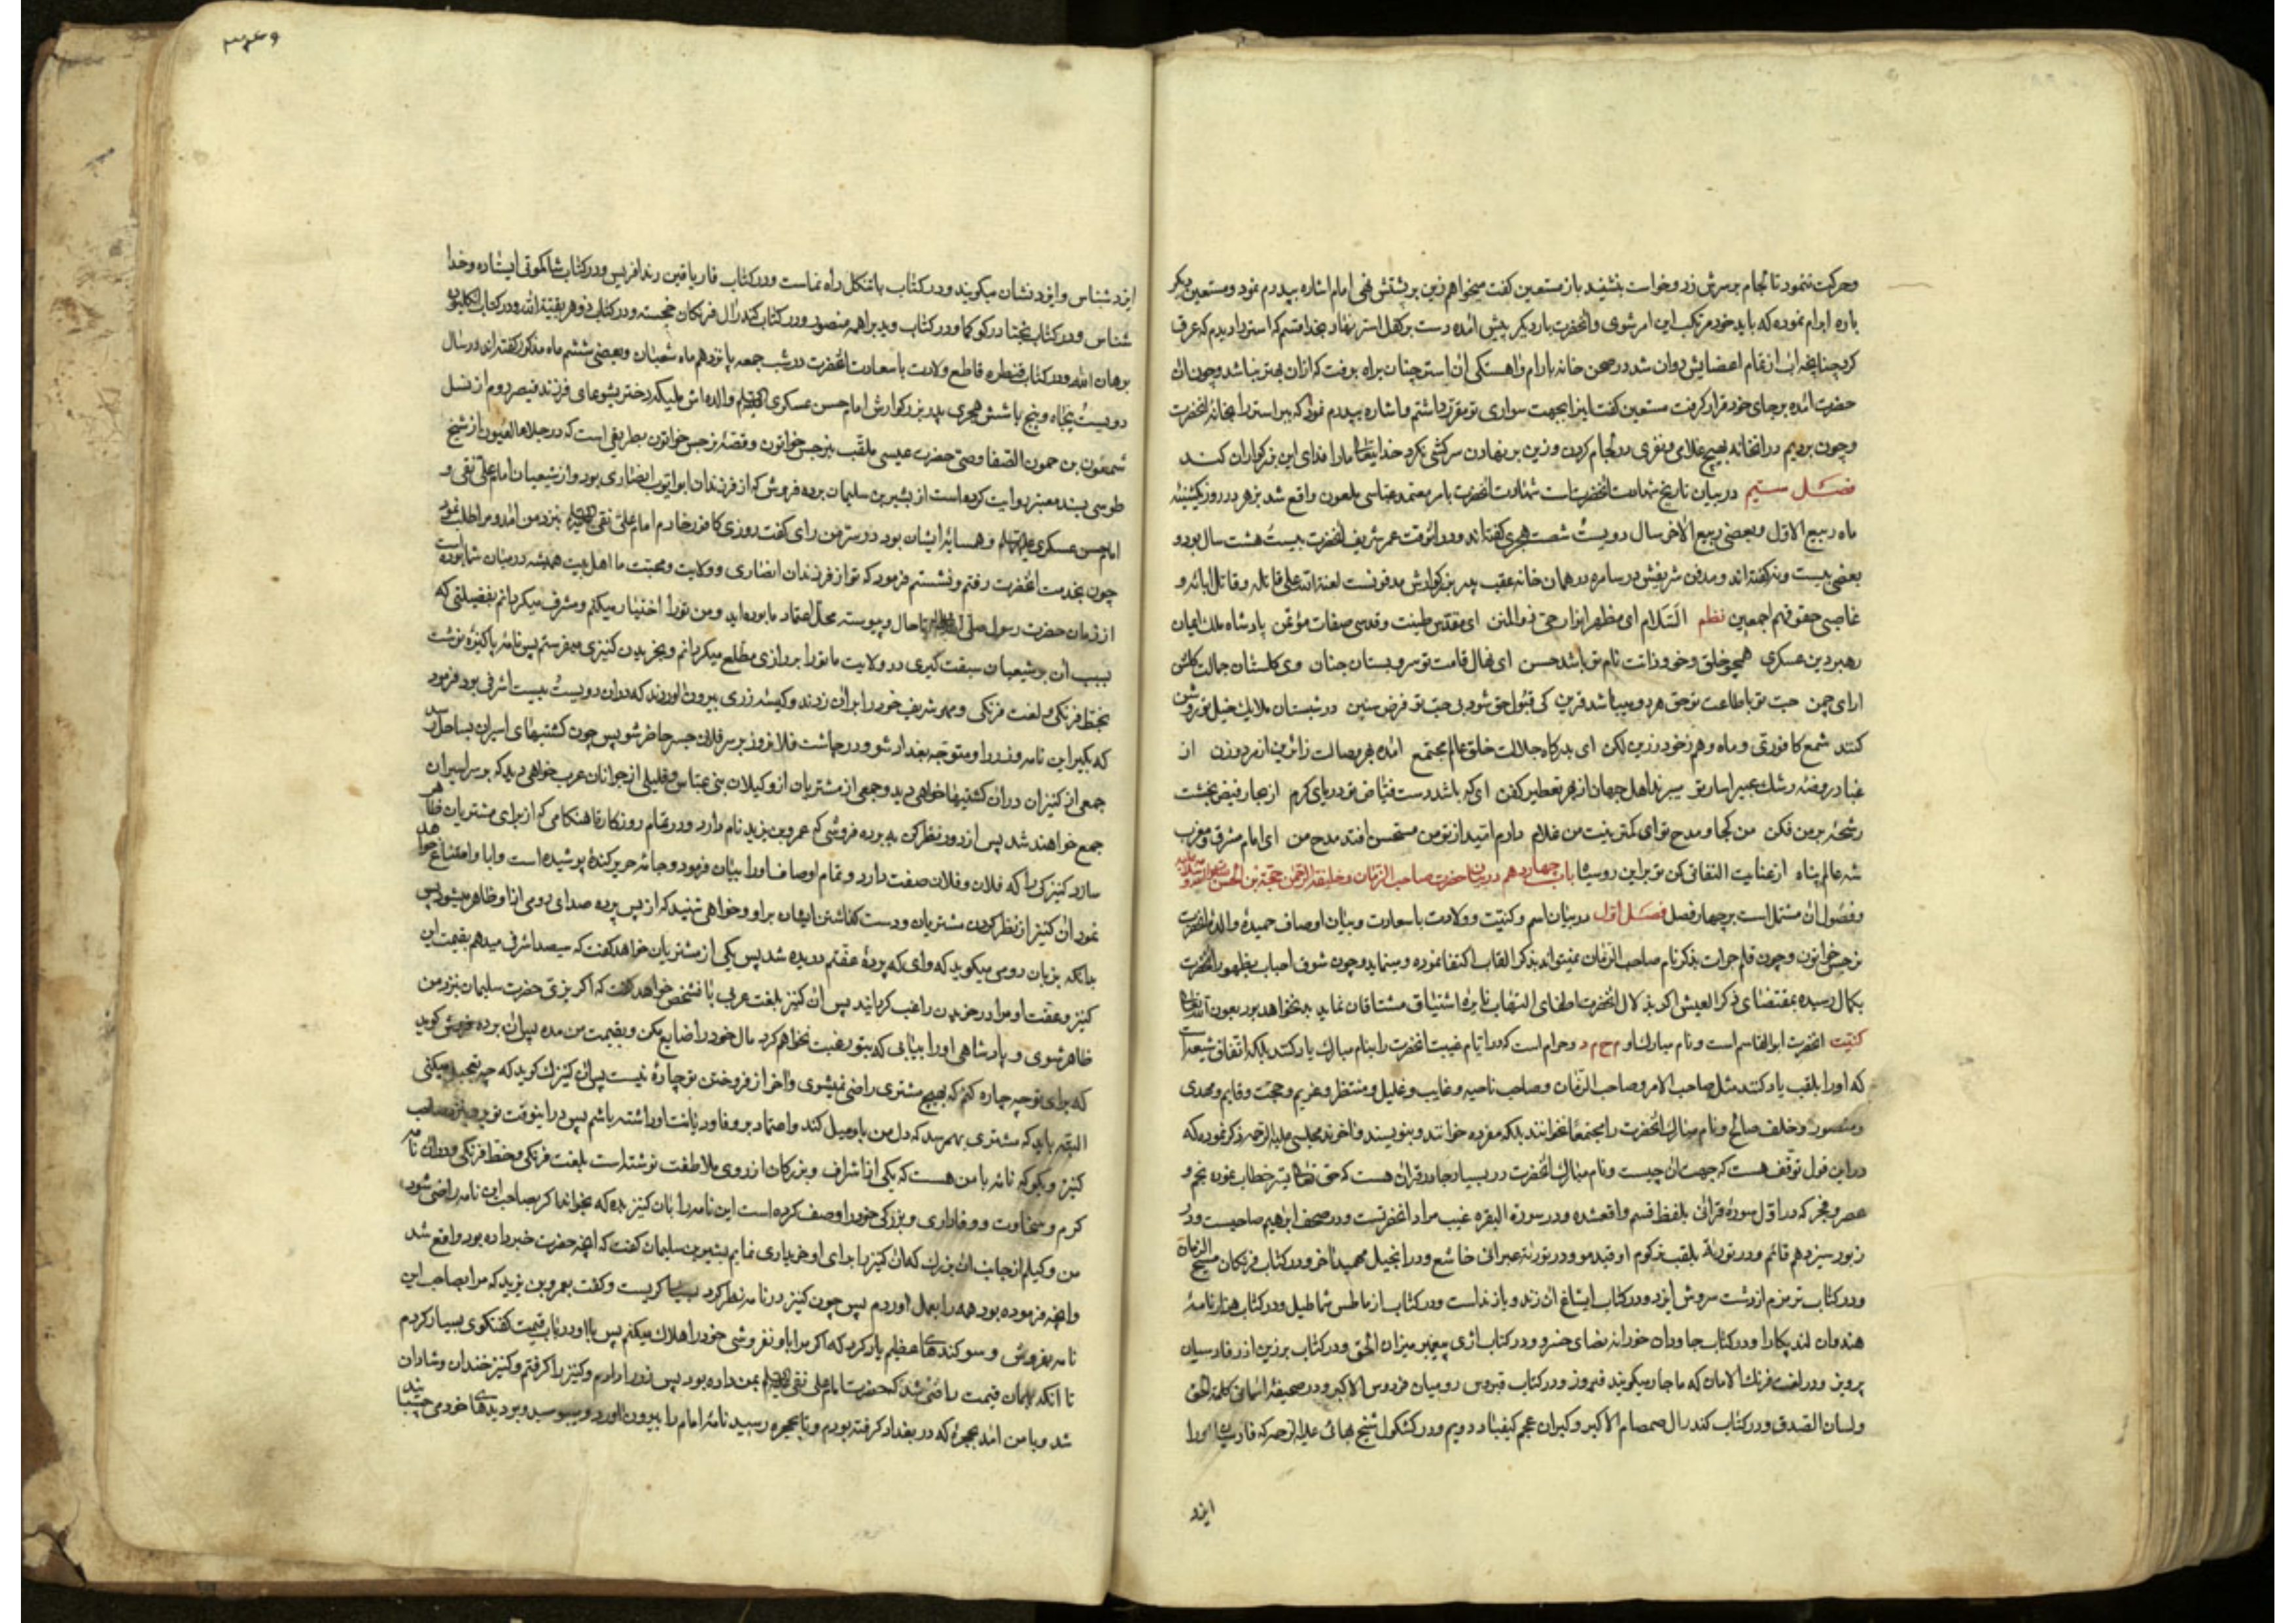 وحرکت ننمود تا لجام برسرش زد وخواست بنشیند باز مستعین گفت میخواهم زین بر پشتش نهی امام اشاره بپدرم نمود ومستعین دیگر
باره ابرام نموده که باید خود مرتکب این امر شوی وانحضرت بار دیگر پیش امده دست بر کفل استر نهاد بخدا قسم که استر را دیدم که عرق
کرد چنانچه اب از تمام اعضایش روان شد در صحن خانه بارام واهستگی ان استر چنان براه برفت که ازان بهتر نباشد وچون ان
حضرت امده برجای خود قرار گرفت مستعین گفت اینرا بجهت سواری تو مقرر داشتم واشاره بپدرم نمود که ببر استر را بخانه انحضرت
وچون بردیم درانخانه بهیچ غلامی ونفری در لجام کردن وزین بر نهادن سرکشی نکرد خدایتعالی مارا فدای این بزرکواران کند
فصل سیم دربیان تاریخ شهادت انحضرتست شهادت انحضرت بامر معتمد عباسی ملعون واقع شد بزهر در روز یکشنبه
ماه ربیع الاول وبعضی ربیع الاخر سال دویست شصت هجری گفته اند ودرانوقت عمر شریف انحضرت بیست هشت سال بود و
بعضی بیست ونه گفته اند ومدفن شریفش در سامره در همان خانه عقب پدر بزرکوارش مدفونست لعنة الله علی قاتله وقاتل ابائه و
غاصبی حقوقهم اجمعین نظم السّلام ای مظهر انوار حق ذوالمنن ای مقدس طینت وقدسی صفات مؤتمن پادشاه ملک ایمان
رهبر دین عسکری همچو خلق وخو وذاتت نام تو باشد حسن ای نهال قامت تو سرو بستان جنان وی گلستان جمالت گلشن
ارای چمن حب تو با طاعت توحق هر دو میباشد قرین کی قبول حق شود بی حب تو فرض سنن در شبستان ملایک خیل تو روشن
کنند شمع کافوری وماه وهم زخود زرین لگن ای بدرکاه جلالت خلق عالم مجتمع امده بهر وصالت زائرین از مرد وزن از
غبار روضه رشک عبیراسای تو میبرند اهل جهان از بهر تعطیر کفن ای که باشد دست فیّاض تو دریای کرم از بحار فیض بخشت
رشحهٔ برمن فکن من کجا ومدح تو ای کمترینت من غلام دارم امّید از تو من مستحسن افتد مدح من ای امام مشرق ومغرب
شه عالم پناه از عنایت التفاتی کن تو براین روسیاه باب چهاردهم دربیان حضرت صاحب الزمان وخلیفة الرحمن حجة بن الحسن
وفصول ان مشتمل است برچهار فصل فصل اوّل دربیان اسم وکنیّت وولادت باسعادت وبیان اوصاف حمیدهٔ والدهٔ انحضرت
نرجس خواتون وچون قلم جرات بذکر نام صاحب الزّمان نمیتواند بذکر القاب اکتفا نموده ومینماید وچون شوق احباب بظهور انحضرت
بکمال رسیده بمقتضای ذکر العیش اگر بذکر لال انحضرت اطفای التهاب نایرهٔ اشتیاق مشتاقان نماید بد نخواهد بود بعون الله تعالی
کنیّت انحضرت ابوالقاسم است ونام مبارک او م ح م د وحرام است که در ایّام غیبت انحضرت را بنام مبارک یاد کنند بلکه اتفاق شیعه است
که اورا بلقب یاد کنند مثل صاحب الامر وصاحب الزّمان وصاحب ناحیه وغایب وغلیل ومنتظر وغریم وحجّت وقایم ومهدی
ومنصور وخلف صالح ونام مبارک انحضرت را مجتمعًا نخوانند بلکه مفرده خوانند وبنویسند واخوند مجلسی علیه الرّحمه ذکر نموده که
دراین قول توقّف هست که جهت ان چیست ونام مبارک انحضرت در بسیار جا در قران هست که حق تعالی بنیر خطاب نموده نجم و
عصر وفجر که در اوّل سورهٔ قرانی بلفظ قسم واقعشده ودر سورة البقره غیب مراد انحضرتست ودر صحف ابراهیم صاحبست ودر
زبور سیزدهم قائم ودر توریة بلقب ترکوم اوقیدمو ودر توریة عبرانی خاشع ودر انجیل مهمیدا خر ودر کتاب فرنکان مسیح الزمان
ودر کتاب زمزم ازرشت سروش ایزد ودر کتاب ایشاع ان زند وبازنداست ودر کتاب ازماطس شماطیل ودر کتاب هزار نامهٔ
هندوان لندیکارا ودر کتاب جاودان خورانه بضای خسرو ودر کتاب اژی پیغمبر میزان الحق ودر کتاب برزین اذر فارسیان
پرویز ودر لغت فرنک شالامان که ماجار میکویند فیروز ودر کتاب قبروس رومیان فردوس الاکبر ودر صحیفهٔ اسمانی کلمة الحق
ولسان الصدق ودر کتاب کندرال صمصام الاکبر وکبران عجم کیقباد دویم ودر کشکول شیخ بهائی علیه الرّحمه که فارسیان اورا
ایزد
ایزد شناس وایزد نشان میکویند ودر کتاب پاتنکل راه نماست ودر کتاب فاریاقین زندافریس ودر کتاب شاکمونی ایستاده وخدا
شناس ودر کتاب نجتا درکوکما ودر کتاب وید براهمه منصور ودر کتاب کندرال فرنکان خجسته ودر کتاب ذوهر بقیّة الله ودر کتاب انکلیون
برهان الله ودر کتاب قنطره قاطع ولادت باسعادت انحضرت در شب جمعه پانزدهم ماه شعبان وبعضی ششم ماه مذکور گفته اند در سال
دویست پنجاه وپنج یا شش هجری پدر بزرکوارش امام حسن عسکری والده اش ملیکه دختر یشوعای فرزند قیصر روم از نسل
شمعون بن حمون الصّفا وصی حضرت عیسی ملقّب بنرجس خواتون وقصّهٔ نرجس خواتون بطریقی است که در جلاء العیون از شیخ
طوسی بسند معتبر روایت کرده است از بشیر بن سلیمان برده فروش که از فرزندان ابوایّوب انصاری بود واز شیعیان امام علی نقی و
امام حسن عسکری وهمسایهٔ ایشان بود در سرّ من رای گفت روزی کافور خادم امام علی نقی بنزد من امد ومرا طلب نمود
چون بخدمت انحضرت رفتم ونشستم فرمود که تو از فرزندان انصاری وولایت ومحبّت ما اهل بیت همیشه در میان شما بوده است
از زمان حضرت رسول صلی الله علیه واله تا حال وپیوسته محلّ اعتماد ما بوده اید ومن تورا اختیار میکنم ومشرف میکردانم بفضیلتی که
بسبب ان بر شیعیان سبقت گیری در ولایت ما وتورا بر رازی مطّلع میکردانم وبخریدن کنیزی میفرستم پس نامهٔ پاکیزه نوشت
بخط فرنکی ولغت فرنکی ومهر شریف خود را بران زدند وکیسه زری بیرون اوردند که دران دویست بیست اشرفی بود فرمود
که بگیر این نامه وزر را ومتوجّه بغداد شو ودر چاشت فلان روز بر سر فلان جسر حاضر شو پس چون کشتیهای اسیران بساحل رسد
جمعی از کنیزان دران کشتیها خواهی دید وجمعی از مشتریان از وکیلان بنی عبّاس وقلیلی از جوانان عرب خواهی دید که بر سر اسیران
جمع خواهند شد پس از دور نظر کن به برده فروشی که عمرو بن یزید نام دارد ودر تمام روز تا هنکامی که از برای مشتریان ظاهر
سازد کنیزکی را که فلان وفلان صفت دارد وتمام اوصاف اورا بیان فرمود وجامهٔ حریر کندهٔ پوشیده است وابا وامتناع خواهد
نمود ان کنیز از نظر کردن مشتریان ودست گذاشتن ایشان براو وخواهی شنید که از پس پرده صدای رومی ازاو ظاهر میشود پس
بدانکه بزبان رومی میکوید که وای که پردهٔ عفّتم دریده شد پس یکی از مشتریان خواهد گفت که سیصد اشرفی میدهم بقیمت این
کنیز وعفّت او مرا در خریدن راغب کردانید پس ان کنیز بلغت عربی با شخص خواهد گفت که اگر بزیّ حضرت سلیمان بنزد من
ظاهر شوی وپادشاهی اورا بیابی که بتو رغبت نخواهم کرد مال خود را ضایع مکن وبقیمت من مده پس ان برده فروش کوید
که برای تو چه چاره کنم که بهیچ مشتری راضی نمیشوی واخر از فروختن تو چارهٔ نیست پس ان کنیزک کوید که چه تعجیل میکنی
البتّه باید که مشتری بهم رسد که دل من باو میل کند واعتماد بروفا ودیانت او داشته باشم پس دراینوقت تو برو بنزد صاحب
کنیز وبکو که نامهٔ با من هست که یکی از اشراف وبزرکان از روی ملاطفت نوشته است بلغت فرنکی وخط فرنکی ودران نامه
کرم وسخاوت ووفاداری وبزرکی خود را وصف کرده است این نامه را بان کنیز بده که بخواند اگر بصاحب این نامه راضی شود
من وکیلم از جانب ان بزرک که ان کنیز را برای او خریداری نمایم بشیر بن سلیمان گفت که انچه حضرت خبر داده بود واقع شد
وانچه فرموده بود همه را بعمل اوردم پس چون کنیز در نامه نظر کرد بسیار کریست وگفت بعمرو بن یزید که مرا بصاحب این
نامه بفروش وسوکندهای عظیم یاد کرد که اگر مرا باو نفروشی خود را هلاک میکنم پس بااو در باب قیمت گفتکوی بسیار کردم
تا انکه بهمان قیمت راضی شد که حضرت امام علی نقی بمن داده بود پس زر را دادم وکنیز را گرفتم وکنیز خندان وشادان
شد وبا من امد بحجرهٔ که در بغداد گرفته بودم وتا بحجره رسید نامهٔ امام را بیرون اورد ومیبوسید وبر دیدهای خود می چسبانید